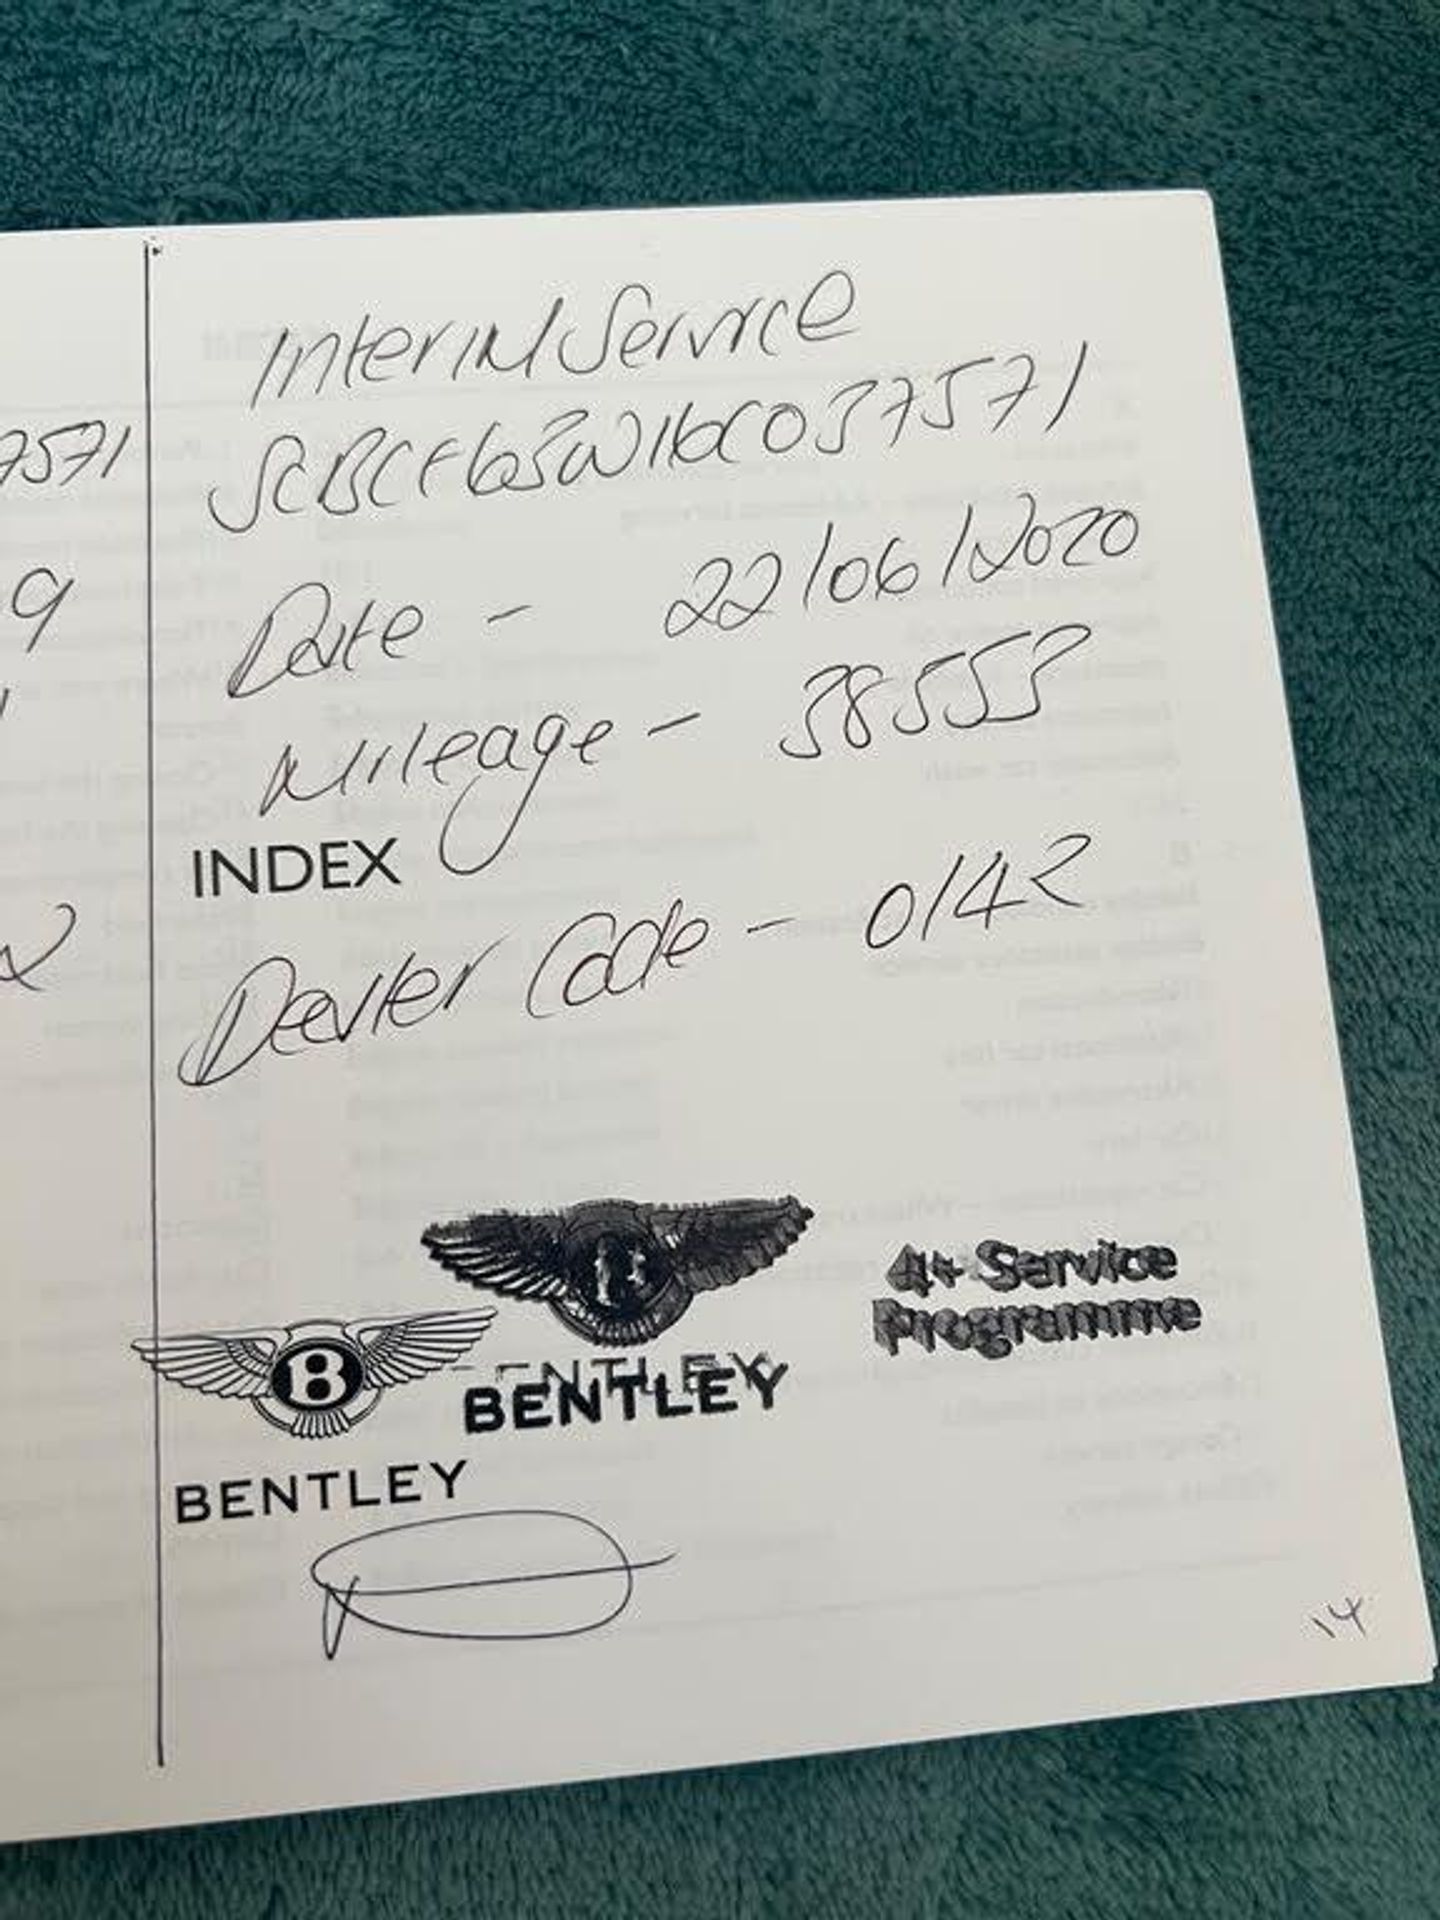 Interim Service
SCBCE63W16C037571
Date - 22/06/2020
Mileage - 38553
INDEX
Dealer Code - 0142
BENTLEY
4+ Service
Programme
B
BENTLEY
14
7571
9
2